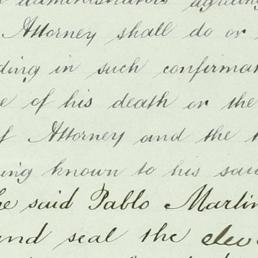 administrators agreeing
Attorney shall do or
ding in such confirma
e of his death or the
f Attorney and the
ing known to his said
he said Pablo Martin
and seal the elev